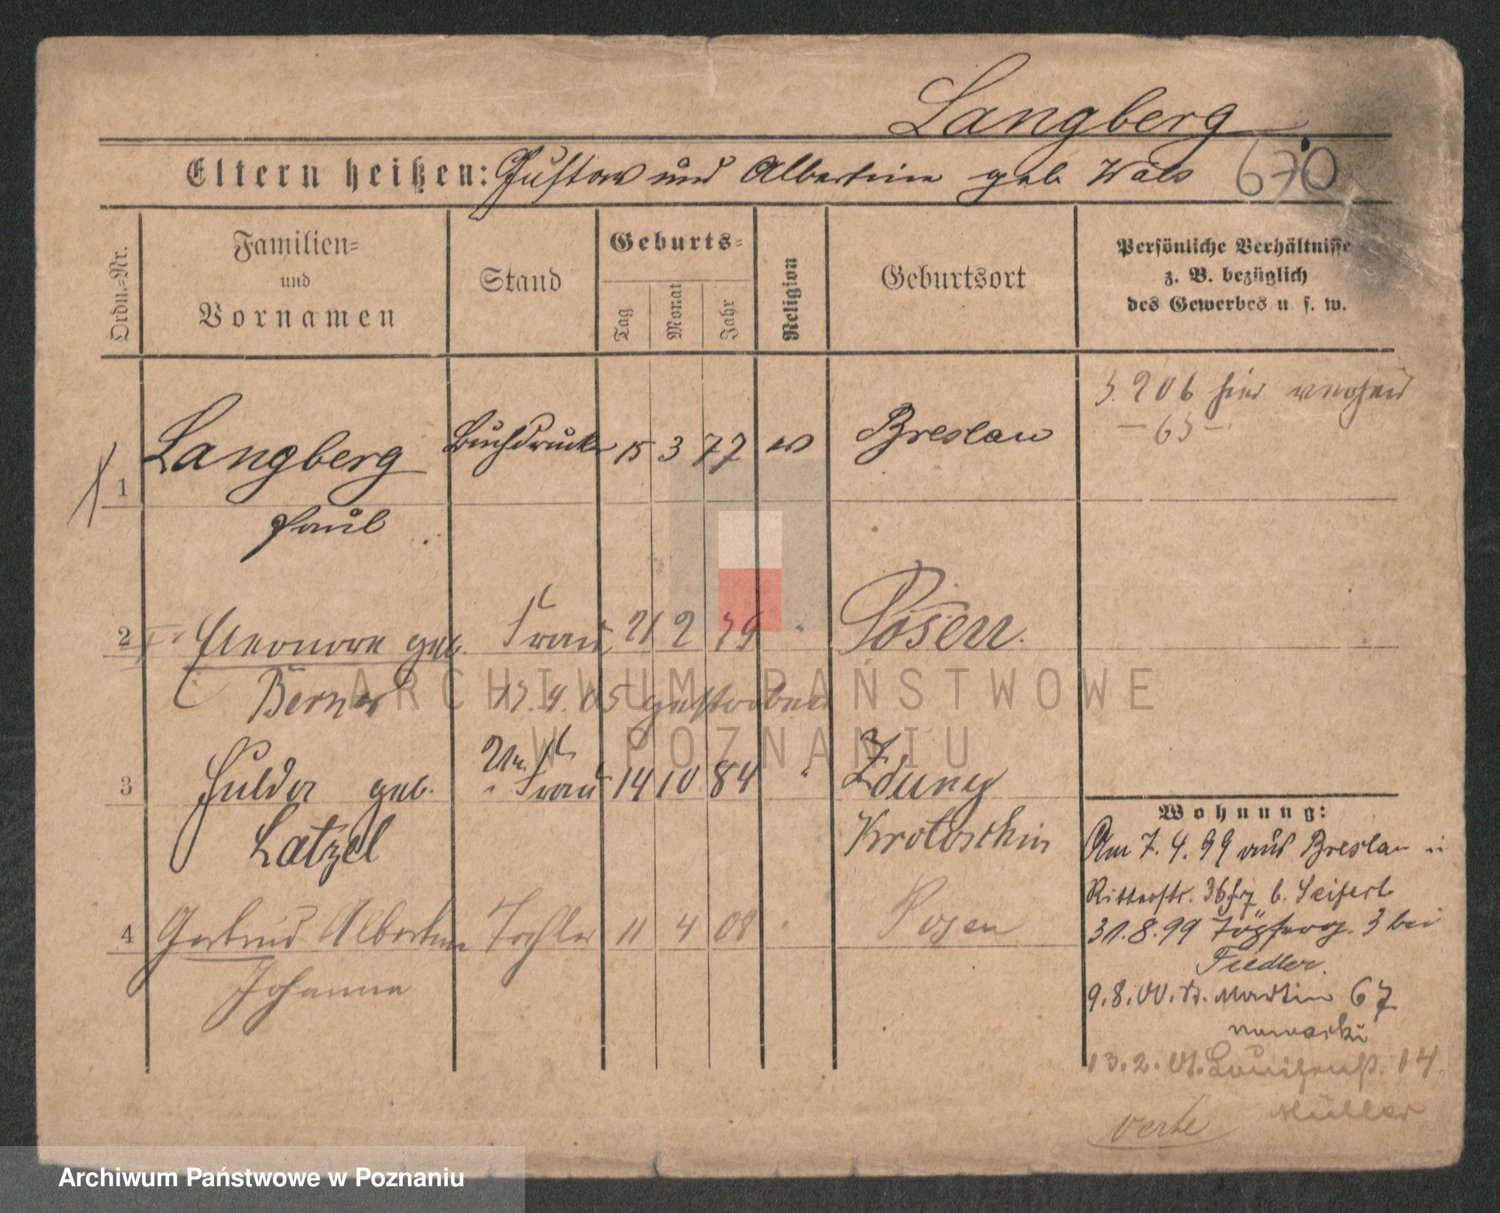 Langberg
Eltern heißen: Gustav und Albertine geb. Wals
670
Ordn.-Nr.
Familien-
und
Vornamen
Stand
Geburts-
Tag
Monat
Jahr
Religion
Geburtsort
Persönliche Verhältnisse
z. B. bezüglich
des Gewerbes u. s. w.
206 hier
65
1 Langberg Buchdrucker 15 3 77 ev Breslau
Paul
2 Eleonore geb. Frau 21 2 79 " Posen
Berner 4. 05 gestorben
3 Hulda geb. Frau 14 10 84 " Zduny
Latzel Krotoschin
4 Gertrud Albertine Tochter 11 4 08 " Posen
Johanna
Wohnung:
Am 7.4.99 aus Breslau
Ritterstr. 36 b. Seifert
31.8.99 3 bei
Fiedler.
9.8.00. St. Martin 67
13.2. 14.
Müller
verte
ARCHIWUM PAŃSTWOWE
W POZNANIU
Archiwum Państwowe w Poznaniu